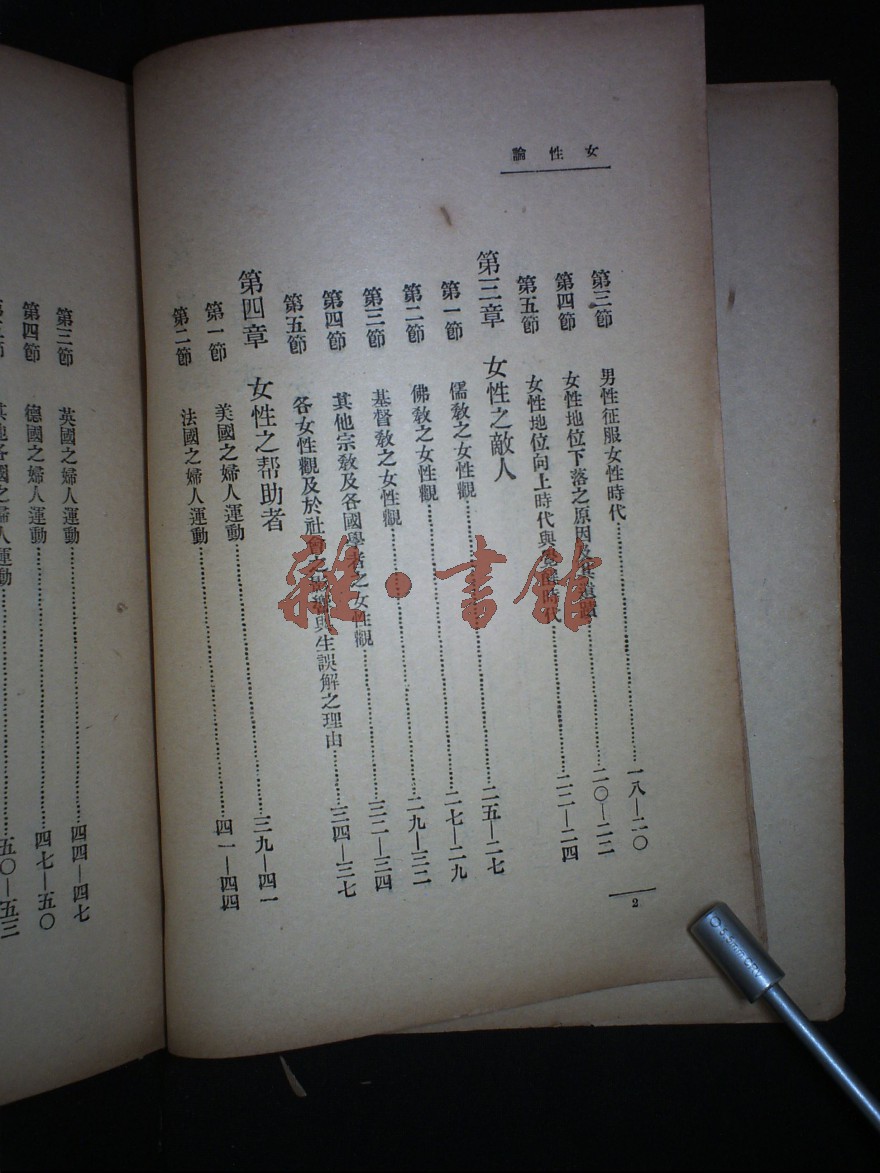 女性論
第三節 男性征服女性時代……一八—二〇
第四節 女性地位下落之原因及其……二〇—二二
第五節 女性地位向上時代與……時代……二二—二四
第三章 女性之敵人
第一節 儒教之女性觀……二五—二七
第二節 佛教之女性觀……二七—二九
第三節 基督教之女性觀……二九—三二
第四節 其他宗教及各國學者之女性觀……三二—三四
第五節 各女性觀及於社會之影響與生誤解之理由……三四—三七
第四章 女性之帮助者
第一節 美國之婦人運動……三九—四一
第二節 法國之婦人運動……四一—四四
2
第三節 英國之婦人運動……四四—四七
第四節 德國之婦人運動……四七—五〇
其他各國之婦人運動……五〇—五三
雜·書館